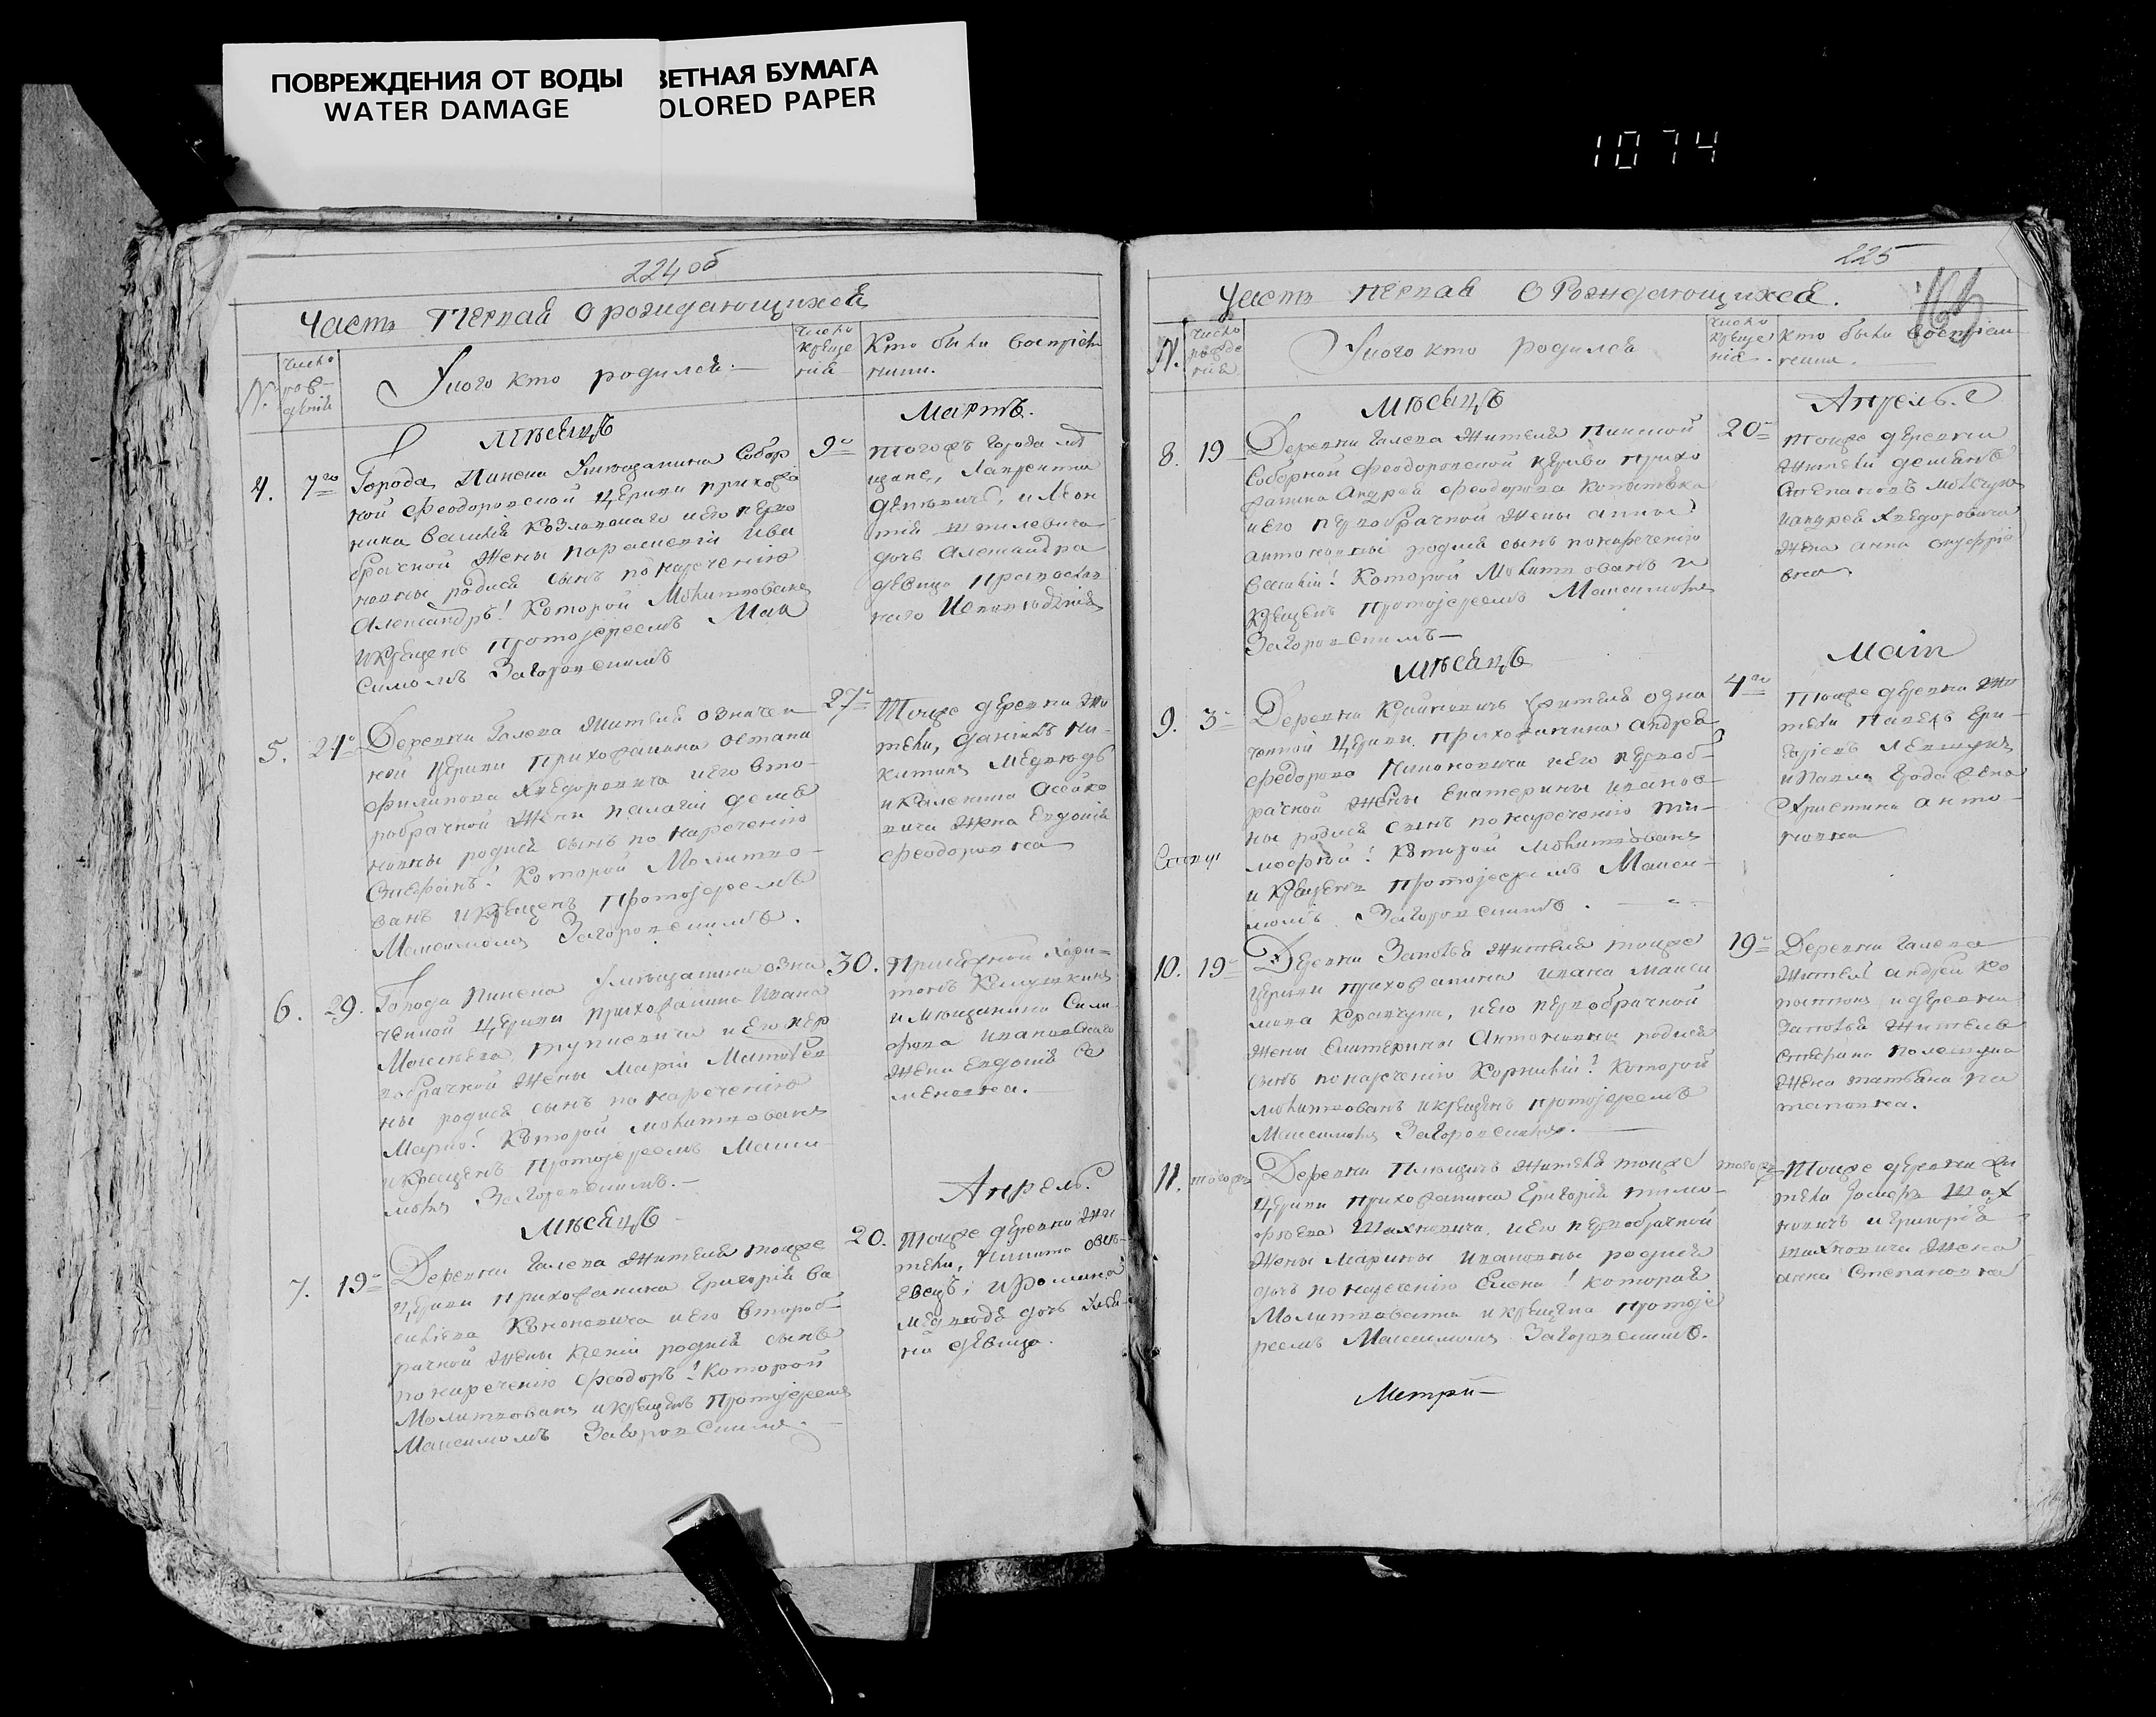 ПОВРЕЖДЕНИЯ ОТ ВОДЫ
WATER DAMAGE
ВЕТНАЯ БУМАГА
OLORED PAPER
1074
224 об
Часть Первая о рождающихся
N.
число рож-
денія
У кого кто родился.
число
креще
нія
Кто были воспріем
ники.
Мѣсяцъ
Мартъ.
4.
7го
Города Пинска Умѣщанина Собор
ной Феодоровской церкви прихожа
ника Василія Козловскаго и его перво
брачной жены Параскевіи Ива
новны родися сынъ по нареченію
Александръ! Которой Молитвованъ
и крещенъ Протоіереемъ Мак
симомъ Загоровскимъ
9о
Тогожъ города мѣ
щане, Лаврентія
и Леон
тія Шпилевича
дочь Александра
девица Православ
наго Исповѣданія
5.
24о
Деревни Галева жителя означен
ной церкви прихожанина Остапа
Филипова Хведоровича и его вто-
робрачной жены Палагіи Демья
новны родися сынъ по нареченію
Стефанъ! Которой Молитво-
ванъ и крещенъ Протоіереемъ
Максимомъ Загоровскимъ.
27о
Тойже деревни жи
тели, Даніилъ Ни-
китинъ Медвюдь
и Каленика
вича жена Евдокія
Феодоровна
6.
29.
Города Пинска Умѣщанина озна
ченной церкви прихожанина Ивана
Моисеева и его пер
вобрачной жены Маріи Матвѣев
ны родися сынъ по нареченію
Марко! Которой молитвованъ
и крещенъ Протоіереемъ Макси
момъ Загоровскимъ.-
30.
Хари-
тонъ
и мѣщанина Сили-
фона Ивановскаго
жена Евдокія Се
меновна.
Мѣсяцъ
Апрель.
7.
19о
Деревни Галева жителя тойже
церкви прихожанина Григорія Ва
силіева Кононовича и его второб-
рачной жены Ксеніи родися сынъ
по нареченію Феодоръ! Которой
Молитвованъ и крещенъ Протоіереемъ
Максимомъ Загоровскимъ.
20.
Тойже деревни жи
тели, Никита
и Романа
Медвюдя дочь
на девица.
225
Часть первая О Рождающихся.
N.
число
рожде
нія
У кого кто родился
число
креще
нія.
Кто были воспріем
ники.
Мѣсяцъ
Апрель.
8.
19
Деревни Галева жителя Пинской
Соборной Феодоровской церкви прихо
жанина Андрея Феодорова
и его первобрачной жены Анны
Антоновны родися сынъ по нареченію
Василій! Которой Молитвованъ и
крещенъ Протоіереемъ Максимомъ
Загоровскимъ
20о
Тойже деревни
жители Демьянъ
Степановъ
и Андрея Хведоровича
жена Анна Онуфріе
вна
Мѣсяцъ
Маія
9.
3о
Деревни Крайновичъ жителя озна
ченной церкви прихожанина Андрея
Федорова и его первоб-
рачной жены Екатерины Иванов-
ны родися сынъ по нареченію Ти-
мофѣй! Которой Молитвованъ
и крещенъ Протоіереемъ Макси-
момъ Загоровскимъ.
4го
Тойже деревни жи
тели Павелъ Гри-
горіевъ
и Павла жена
Христина Анто-
новна
10.
19о
Деревни Заполья жителя тойже
церкви прихожанина Ивана Макси
мова Кравчука, и его первобрачной
жены Екатерины Антоновны родися
сынъ по нареченію Корнилій! Которой
молитвованъ и крещенъ протоіереемъ
Максимомъ Загоровскимъ.
19о
Деревни Галева
житель Андрей Ко
и деревни
Заполья жителя
Стефана Полещука
жена Татьяна По
таповна.
11.
тогожъ
Деревни Плещичъ жителя тойже
церкви прихожанина Григорія Тимо-
фѣева Шахновича, и его первобрачной
жены Марины Ивановны родися
дочь по нареченію Елена! которая
Молитвована и крещена Протоіе
реемъ Максимомъ Загоровскимъ.
тогожъ
Тойже деревни жи
тели Іосифъ Шах
новичъ и Григорія
Шахновича жена
Анна Степановна
Метри-